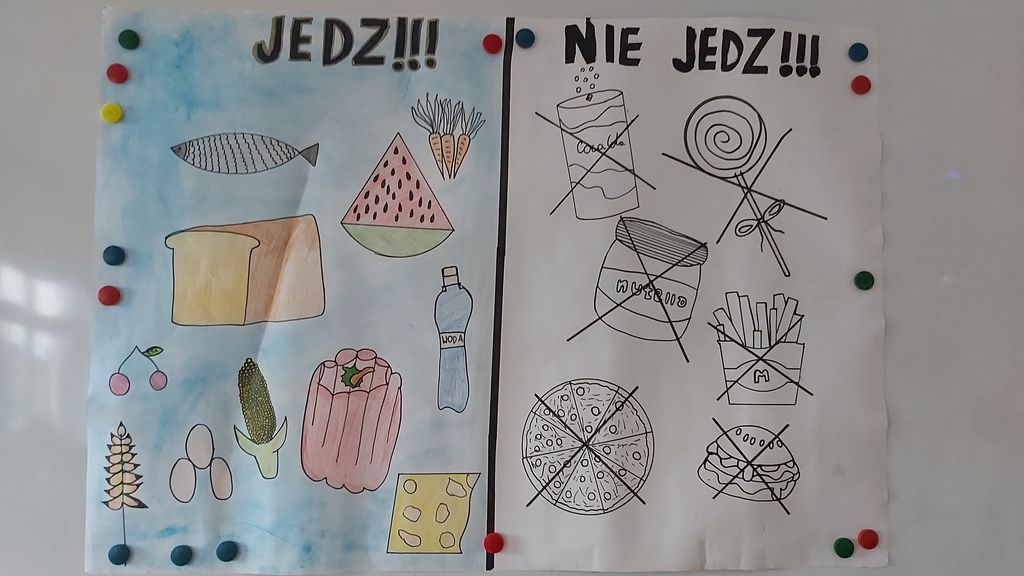 JEDZ!!!
NIE JEDZ!!!
Coca Cola
NUTELLA
WODA
M